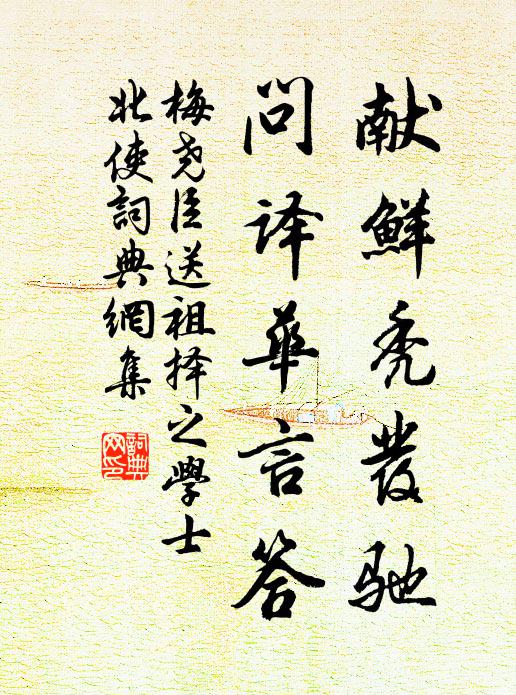 献鲜秃发驰
问译华言答
梅尧臣送祖择之学士
北使词典网集
词典网印